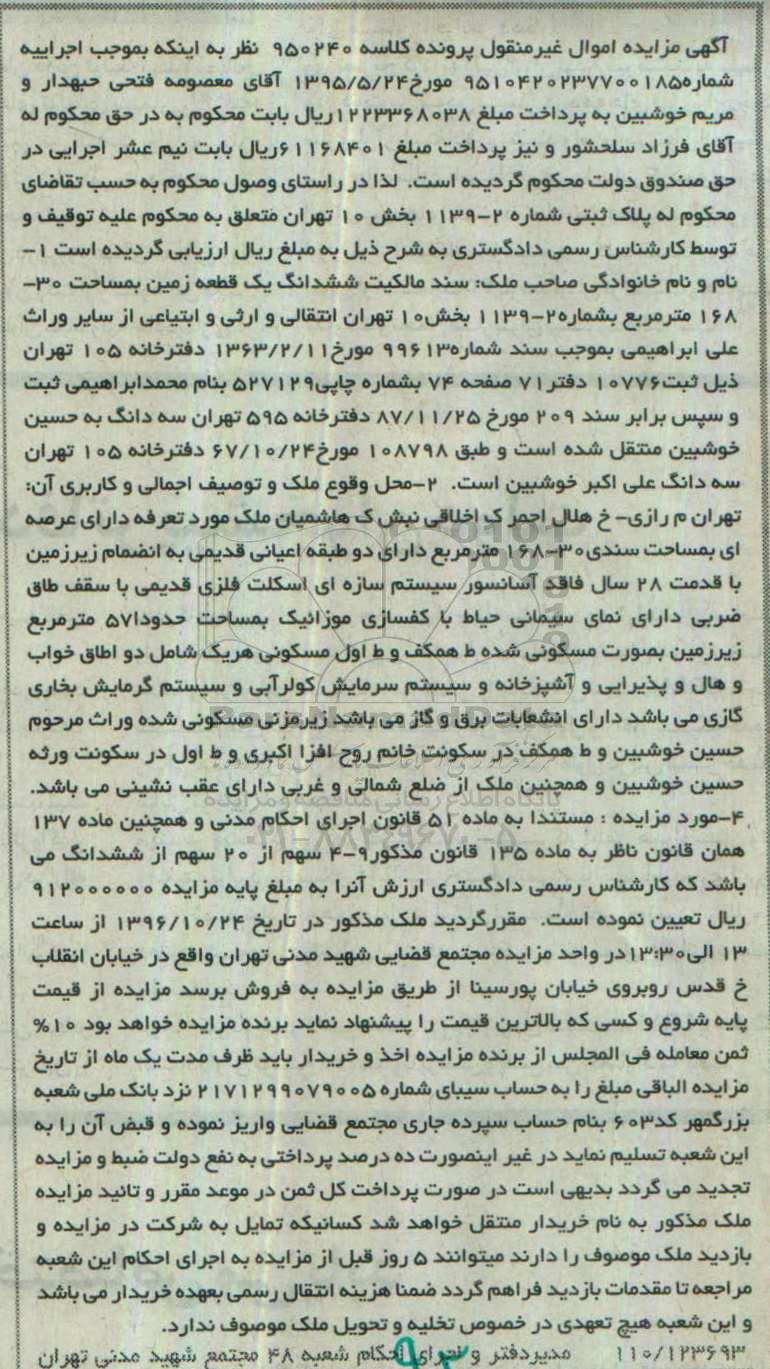 آگهی مزایده اموال غیرمنقول پرونده کلاسه ۹۵۰۲۴۰ نظر به اینکه بموجب اجراییه
شماره۹۵۱۰۴۲۰۲۳۷۷۰۰۱۸۵ مورخ۱۳۹۵/۵/۲۴ آقای معصومه فتحی حبهدار و
مریم خوشبین به پرداخت مبلغ ۱۲۲۳۳۶۸۰۳۸ریال بابت محکوم به در حق محکوم له
آقای فرزاد سلحشور و نیز پرداخت مبلغ ۶۱۱۶۸۴۰۱ریال بابت نیم عشر اجرایی در
حق صندوق دولت محکوم گردیده است. لذا در راستای وصول محکوم به حسب تقاضای
محکوم له پلاک ثبتی شماره ۲-۱۱۳۹ بخش ۱۰ تهران متعلق به محکوم علیه توقیف و
توسط کارشناس رسمی دادگستری به شرح ذیل به مبلغ ریال ارزیابی گردیده است ۱-
نام و نام خانوادگی صاحب ملک: سند مالکیت ششدانگ یک قطعه زمین بمساحت ۳۰-
۱۶۸ مترمربع بشماره۲-۱۱۳۹ بخش۱۰ تهران انتقالی و ارثی و ابتیاعی از سایر وراث
علی ابراهیمی بموجب سند شماره۹۹۶۱۳ مورخ۱۳۶۳/۲/۱۱ دفترخانه ۱۰۵ تهران
ذیل ثبت۱۰۷۷۶ دفتر۷۱ صفحه ۷۴ بشماره چاپی۵۲۷۱۲۹ بنام محمدابراهیمی ثبت
و سپس برابر سند ۲۰۹ مورخ ۸۷/۱۱/۲۵ دفترخانه ۵۹۵ تهران سه دانگ به حسین
خوشبین منتقل شده است و طبق ۱۰۸۷۹۸ مورخ۶۷/۱۰/۲۴ دفترخانه ۱۰۵ تهران
سه دانگ علی اکبر خوشبین است. ۲-محل وقوع ملک و توصیف اجمالی و کاربری آن:
تهران م رازی- خ هلال احمر ک اخلاقی نبش ک هاشمیان ملک مورد تعرفه دارای عرصه
ای بمساحت سندی۳۰-۱۶۸ مترمربع دارای دو طبقه اعیانی قدیمی به انضمام زیرزمین
با قدمت ۲۸ سال فاقد آسانسور سیستم سازه ای اسکلت فلزی قدیمی با سقف طاق
ضربی دارای نمای سیمانی حیاط با کفسازی موزائیک بمساحت حدودا۵۷ مترمربع
زیرزمین بصورت مسکونی شده ط همکف و ط اول مسکونی هریک شامل دو اطاق خواب
و هال و پذیرایی و آشپزخانه و سیستم سرمایش کولرآبی و سیستم گرمایش بخاری
گازی می باشد دارای انشعابات برق و گاز می باشد زیرمزنی مسکونی شده وراث مرحوم
حسین خوشبین و ط همکف در سکونت خانم روح افزا اکبری و ط اول در سکونت ورثه
حسین خوشبین و همچنین ملک از ضلع شمالی و غربی دارای عقب نشینی می باشد.
۴-مورد مزایده : مستندا به ماده ۵۱ قانون اجرای احکام مدنی و همچنین ماده ۱۳۷
همان قانون ناظر به ماده ۱۳۵ قانون مذکور۹-۴ سهم از ۲۰ سهم از ششدانگ می
باشد که کارشناس رسمی دادگستری ارزش آنرا به مبلغ پایه مزایده ۹۱۲۰۰۰۰۰۰
ریال تعیین نموده است. مقررگردید ملک مذکور در تاریخ ۱۳۹۶/۱۰/۲۴ از ساعت
۱۳ الی۱۳:۳۰در واحد مزایده مجتمع قضایی شهید مدنی تهران واقع در خیابان انقلاب
خ قدس روبروی خیابان پورسینا از طریق مزایده به فروش برسد مزایده از قیمت
پایه شروع و کسی که بالاترین قیمت را پیشنهاد نماید برنده مزایده خواهد بود ۱۰%
ثمن معامله فی المجلس از برنده مزایده اخذ و خریدار باید ظرف مدت یک ماه از تاریخ
مزایده الباقی مبلغ را به حساب سیبای شماره ۲۱۷۱۲۹۹۰۷۹۰۰۵ نزد بانک ملی شعبه
بزرگمهر کد۶۰۳ بنام حساب سپرده جاری مجتمع قضایی واریز نموده و قبض آن را به
این شعبه تسلیم نماید در غیر اینصورت ده درصد پرداختی به نفع دولت ضبط و مزایده
تجدید می گردد بدیهی است در صورت پرداخت کل ثمن در موعد مقرر و تائید مزایده
ملک مذکور به نام خریدار منتقل خواهد شد کسانیکه تمایل به شرکت در مزایده و
بازدید ملک موصوف را دارند میتوانند ۵ روز قبل از مزایده به اجرای احکام این شعبه
مراجعه تا مقدمات بازدید فراهم گردد ضمنا هزینه انتقال رسمی بعهده خریدار می باشد
و این شعبه هیچ تعهدی در خصوص تخلیه و تحویل ملک موصوف ندارد.
۱۱۰/۱۲۳۶۹۳ مدیردفتر و اجرای احکام شعبه ۴۸ مجتمع شهید مدنی تهران